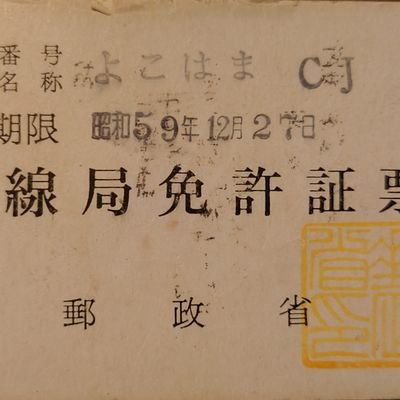 番号
名称 よこはま CJ
期限 昭和59年12月27日
線局免許証票
郵政省